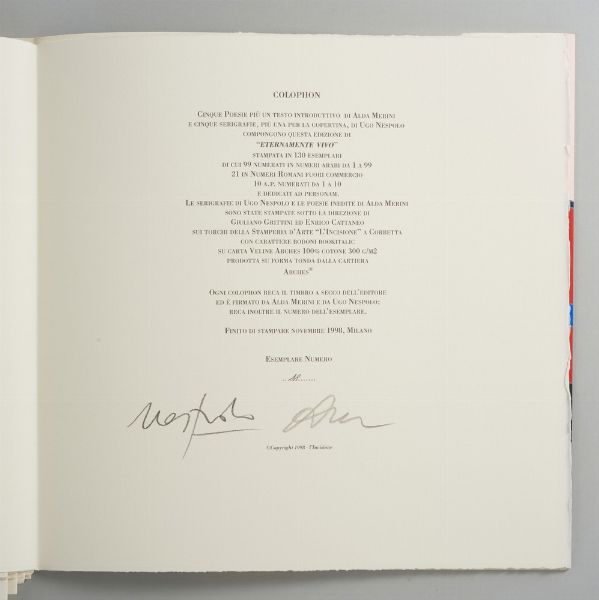 COLOPHON
CINQUE POESIE PIÙ UN TESTO INTRODUTTIVO DI ALDA MERINI
E CINQUE SERIGRAFIE, PIÙ UNA PER LA COPERTINA, DI UGO NESPOLO
COMPONGONO QUESTA EDIZIONE DI
"ETERNAMENTE VIVO"
STAMPATA IN 130 ESEMPLARI
DI CUI 99 NUMERATI IN NUMERI ARABI DA 1 A 99
21 IN NUMERI ROMANI FUORI COMMERCIO
10 A.P. NUMERATI DA 1 A 10
E DEDICATI AD PERSONAM.
LE SERIGRAFIE DI UGO NESPOLO E LE POESIE INEDITE DI ALDA MERINI
SONO STATE STAMPATE SOTTO LA DIREZIONE DI
GIULIANO GRITTINI ED ENRICO CATTANEO
SUI TORCHI DELLA STAMPERIA D'ARTE "L'INCISIONE" A CORBETTA
CON CARATTERE BODONI BOOKITALIC
SU CARTA VELINE ARCHES 100% COTONE 300 G/M2
PRODOTTA SU FORMA TONDA DALLA CARTIERA
ARCHES®
OGNI COLOPHON RECA IL TIMBRO A SECCO DELL'EDITORE
ED È FIRMATO DA ALDA MERINI E DA UGO NESPOLO;
RECA INOLTRE IL NUMERO DELL'ESEMPLARE.
FINITO DI STAMPARE NOVEMBRE 1998, MILANO
ESEMPLARE NUMERO
Nespolo
©Copyright 1998 - l'Incisione